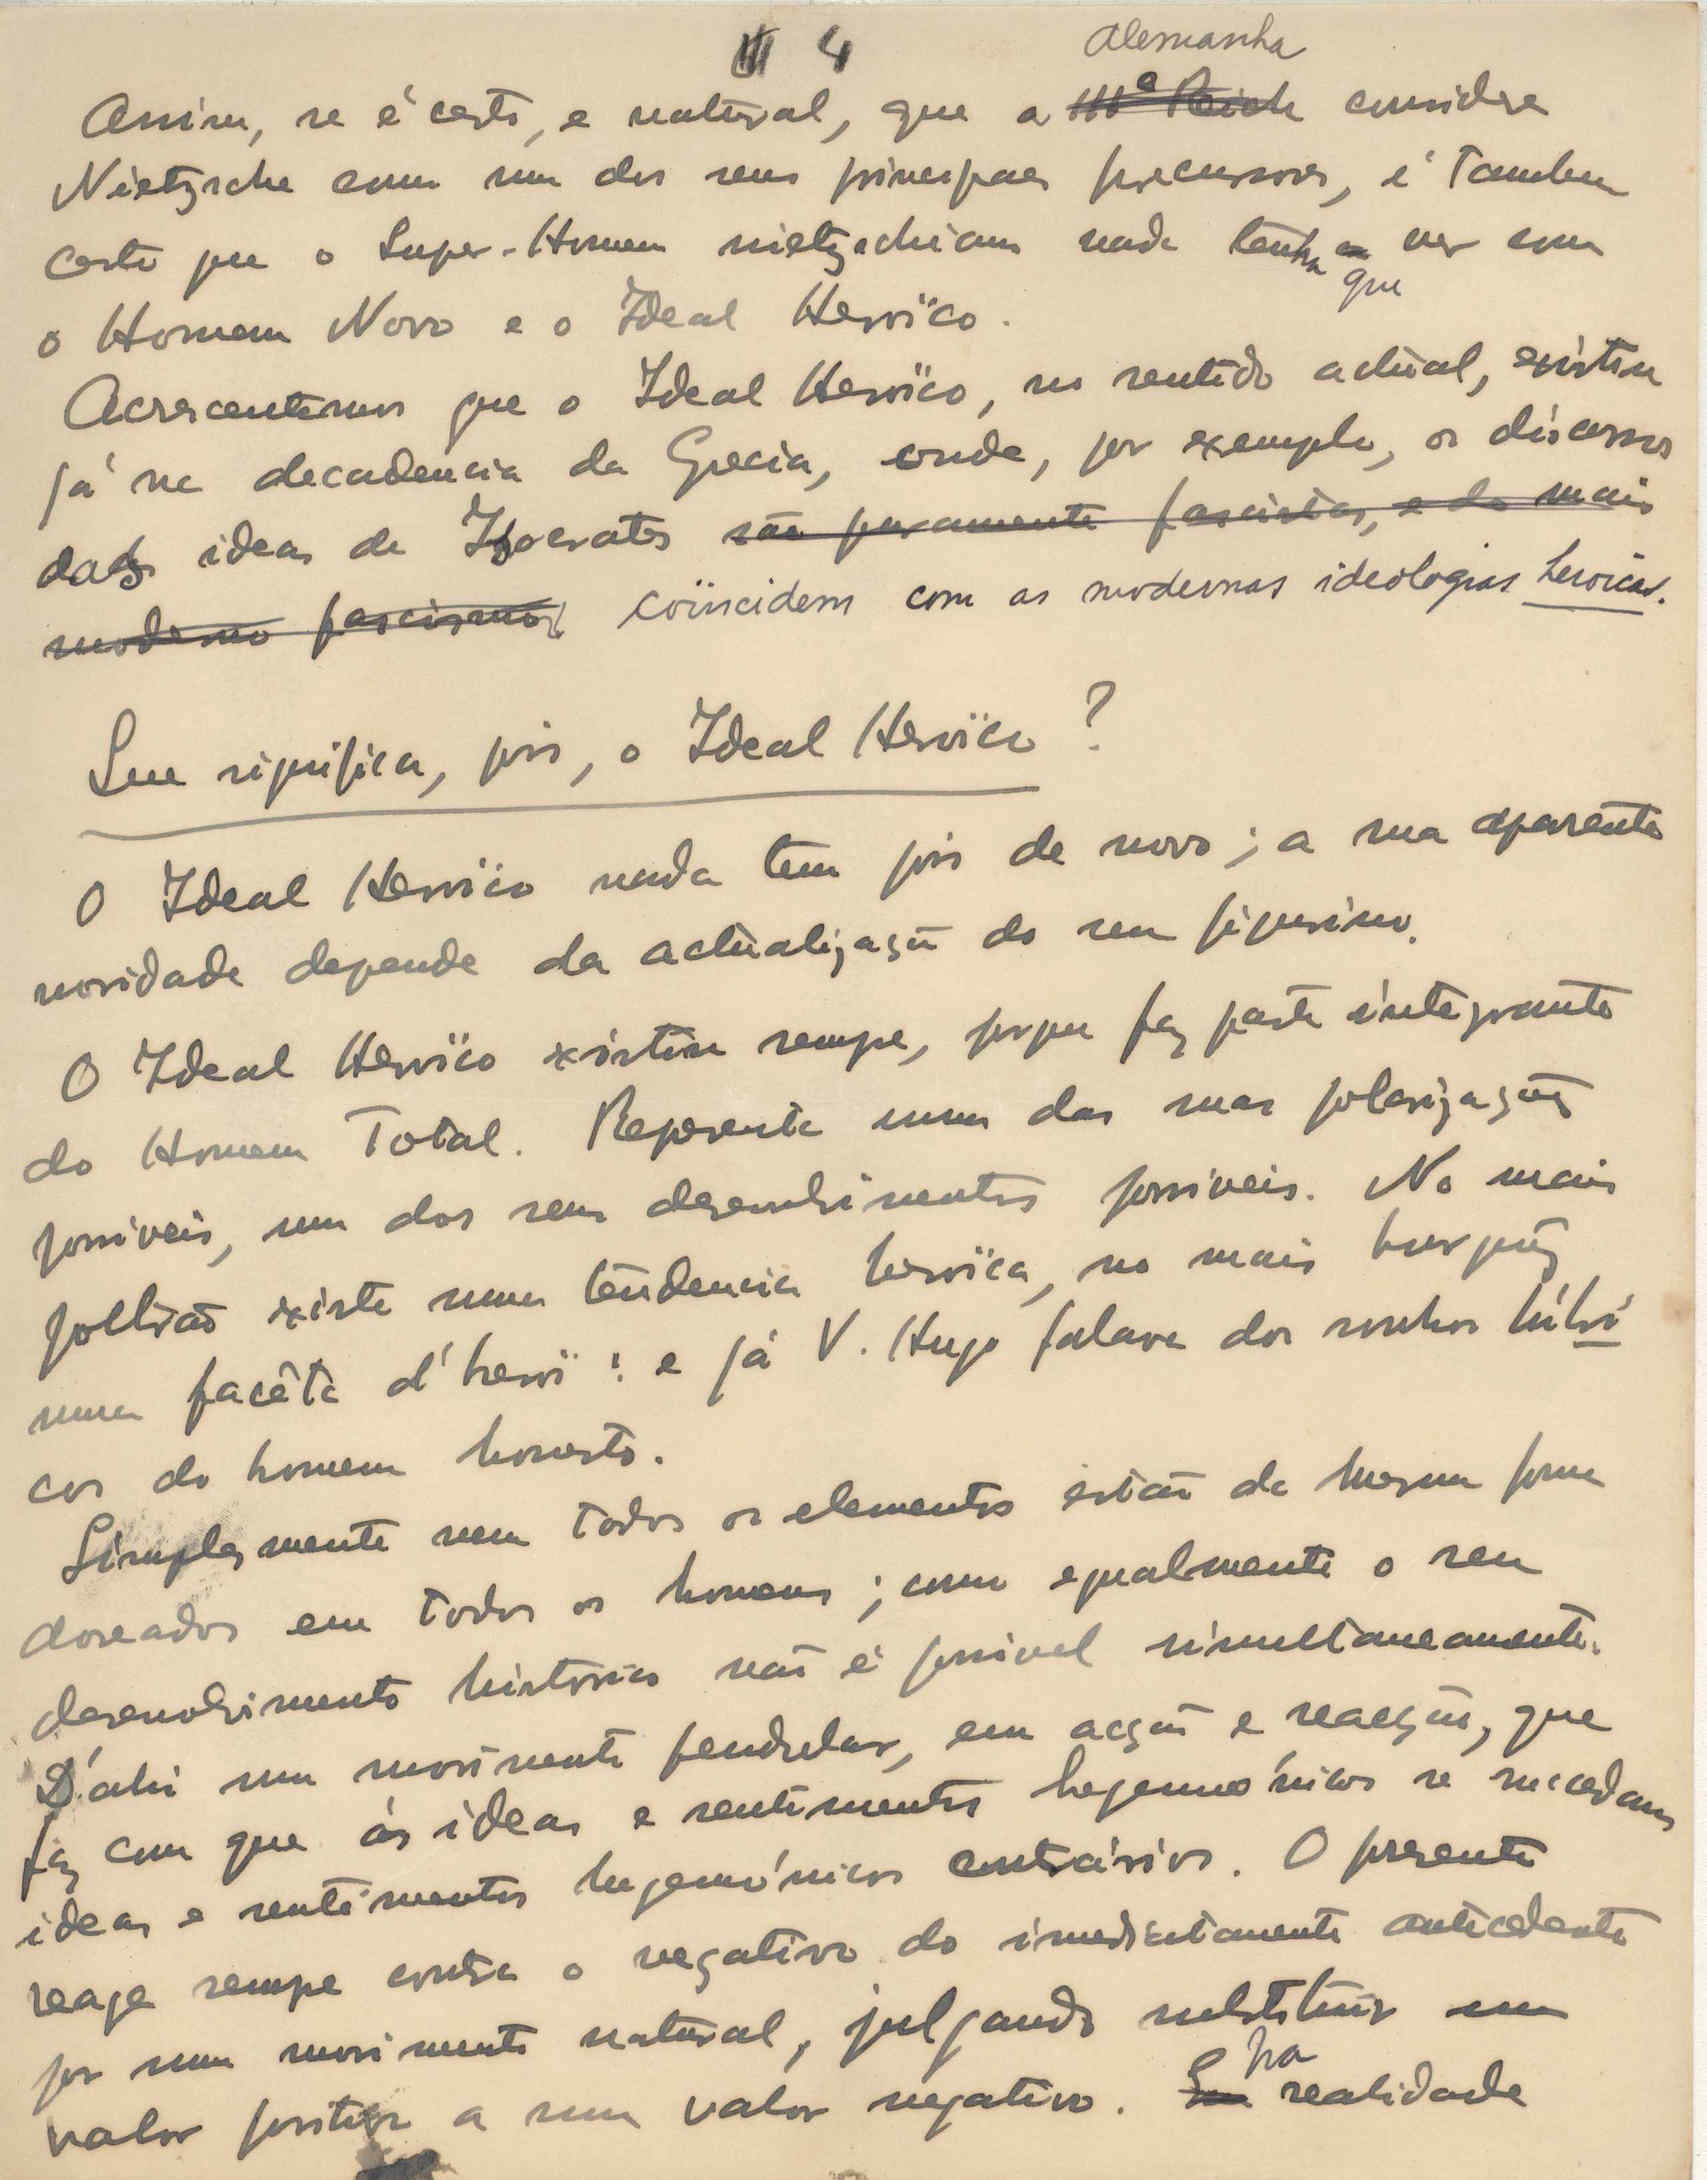 4
Alemanha
Assim, se é certo, e natural, que a IIIº Reich considere
Nietzsche como um dos seus principaes precursores, é tambem
certo que o Super-Homem nietzschiano nada tenha que ver com
o Homem Novo e o Ideal Heroïco.
Acrescentemos que o Ideal Heroïco, no sentido actúal, existiu
já na decadencia da Grecia, onde, por exemplo, os discursos
ideas de Isocrates são puramente fascistas, e do mais
moderno fascismo, coïncidem com as modernas ideologias heroicas.
Que significa, pois, o Ideal Heroïco?
O Ideal Heroïco nada tem pois de novo; a sua aparente
novidade depende da actúalização do seu figurino.
O Ideal Heroïco existiu sempre, porque faz parte integrante
do Homem Total. Representa uma das suas polarizações
possiveis, um dos seus desenvolvimentos possiveis. No mais
poltrão existe uma tendencia heroïca, no mais burguês
uma facêta d'heroï: e já V. Hugo falava dos sonhos lúbri
cos do homem honesto.
Simplesmente nem todos os elementos estão da mesma forma
doseados em todos os homens; como egualmente o seu
desenvolvimento historico não é possivel simultaneamente.
D'ahi um movimento pendular, em acção e reacção, que
faz com que ás ideas e sentimentos hegemónicos se sucedam
ideas e sentimentos hegemónicos contrários. O presente
reage sempre contra o negativo do imediatamente antecedente
por um movimento natural, julgando substituir um
valor positivo a um valor negativo. Em na realidade